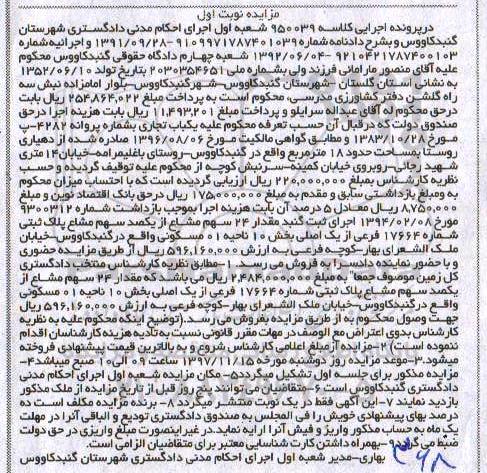 مزایده نوبت اول
درپرونده اجرایی کلاسه ۹۵۰۰۳۹ شعبه اول اجرای احکام مدنی دادگستری شهرستان
گنبدکاووس وبشرح دادنامه شماره ۹۱۰۹۹۷۱۷۸۷۴۰۱۰۳۹-۱۳۹۱/۰۹/۲۸ و اجرائیه شماره
۹۲۱۰۴۲۱۷۸۷۴۰۰۱۰۳-۱۳۹۲/۰۶/۰۴ شعبه چهارم دادگاه حقوقی گنبدکاووس محکوم
علیه آقای منصور مارامائی فرزند ولی بشماره ملی ۲۰۳۰۳۵۴۶۵۱ بتاریخ تولد ۱۳۵۲/۰۶/۱۰
به نشانی استان گلستان - شهرستان گنبدکاووس-شهرگنبدکاووس-بلوار امامزاده نبش سه
راه گلشن دفتر کشاورزی مدرسی، محکوم است به پرداخت مبلغ ۲۵۴,۸۶۴,۰۲۲ ریال بابت
درحق محکوم له آقای عبداله سرایلو و پرداخت مبلغ ۱۱,۴۹۳,۲۰۱ ریال بابت هزینه اجرا درحق
صندوق دولت که درقبال آن حسب تعرفه محکوم علیه یکباب تجاری بشماره پروانه ۴۲۸۲-پ
مورخ ۱۳۸۳/۱۰/۲۸ و مطابق گواهی مالکیت مورخ ۱۳۹۶/۰۸/۰۶ صادره شده از دهیاری
روستا بمساحت حدود ۱۸ مترمربع واقع در گنبدکاووس-روستای باغلیمرامه-خیابان۱۴متری
شهید رجائی-روبروی خیابان کمیته-سرنبش کوچه از محکوم علیه توقیف گردیده و حسب
نظریه کارشناس بمبلغ ۲۲۶,۰۰۰,۰۰۰ ریال ارزیابی گردیده است که با احتساب میزان محکوم
به ومبلغ بازداشتی سابق و مقدم به مبلغ ۱۷۵,۰۰۰,۰۰۰ ریال درحق بانک اقتصاد نوین و مبلغ
۸,۷۵۰,۰۰۰ ریال معادل ۵ درصد آن بابت هزینه اجرا بموجب بازداشت شماره ۹۳۰۰۳۱۲
مورخ ۱۳۹۴/۰۲/۰۸ اجرای ثبت گنبد مقدار ۲۴ سهم مشاع از یکصد سهم مشاع پلاک ثبتی
شماره ۱۷۶۶۴ فرعی از یک اصلی بخش ۱۰ ناحیه ۰۱ مسکونی واقع در گنبدکاووس-خیابان
ملک الشعرای بهار-کوچه فرعی به ارزش ۵۹۶,۱۶۰,۰۰۰ ریال از طریق مزایده حضوری
و با حضور نماینده دادسرا به فروش می رسد ۱-مطابق نظریه کارشناس منتخب دادگستری
کل زمین موصوف جمعا" به مبلغ ۲,۴۸۴,۰۰۰,۰۰۰ ریال می باشد که مقدار ۲۴ سهم مشاع از
یکصد سهم مشاع پلاک ثبتی شماره ۱۷۶۶۴ فرعی از یک اصلی بخش ۱۰ ناحیه ۰۱ مسکونی
واقع در گنبدکاووس-خیابان ملک الشعرای بهار-کوچه فرعی-به ارزش ۵۹۶,۱۶۰,۰۰۰ ریال
جهت وصول محکوم به از طریق مزایده بفروش می رسد.(توضیح اینکه محکوم علیه به نظریه
کارشناس بدوی اعتراض مع الوصف در مهلت مقرر قانونی نسبت به تادیه هزینه کارشناسان اقدام
ننموده است) ۲-مزایده از مبلغ اعلامی کارشناس شروع و به بالاترین قیمت پیشنهادی فروخته
میشود.۳-موعد مزایده روز دوشنبه مورخه ۱۳۹۷/۱۱/۱۵ ساعت ۹ الی ۱۰ صبح میباشد.۴-
مزایده مذکور برای جلسه اول تشکیل میگردد۵- مکان مزایده شعبه اول اجرای احکام مدنی
دادگستری گنبدکاووس است ۶-متقاضیان می توانند ۵ روز قبل از تاریخ مزایده از ملک مذکور
بازدید نمایند ۷-این آگهی فقط در یک نوبت منتشر میگردد ۸- برنده مزایده مکلف است ده
درصد بهای پیشنهادی خویش را فی المجلس به صندوق دادگستری تودیع و الباقی آنرا در مهلت
یک ماه به حساب مذکور واریز و فیش آنرا ارایه نماید.در غیر اینصورت مبلغ واریزی در حق دولت
ضبط می گردد۹-بهمراه داشتن کارت شناسایی معتبر برای متقاضیان الزامی است.
بهاری-مدیر شعبه اول اجرای احکام مدنی دادگستری شهرستان گنبدکاووس